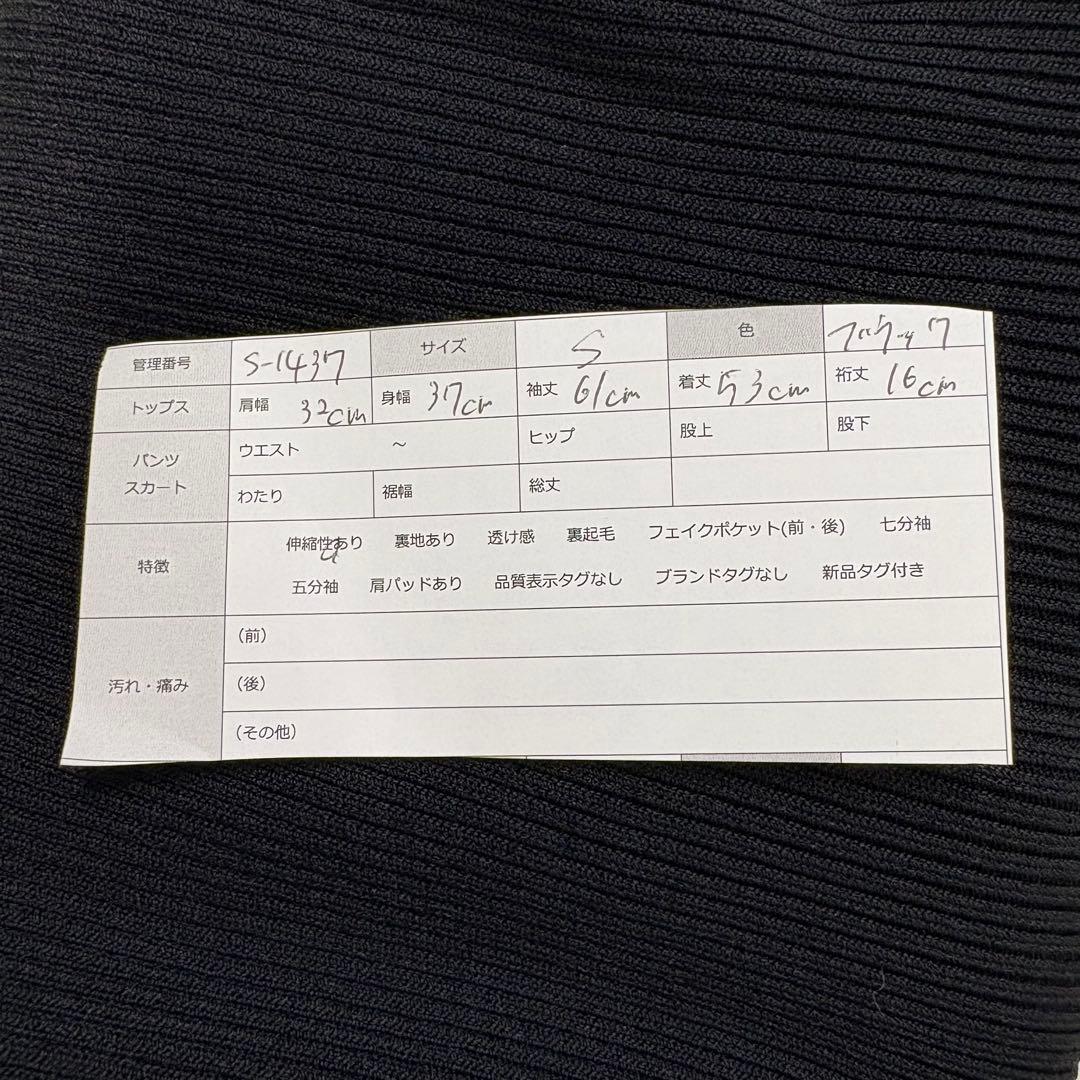 管理番号 S-1437 サイズ S 色 ブラック
トップス 肩幅 32cm 身幅 37cm 袖丈 61cm 着丈 53cm 裄丈 16cm
パンツ スカート ウエスト ～ ヒップ 股上 股下
わたり 裾幅 総丈
特徴 伸縮性あり 裏地あり 透け感 裏起毛 フェイクポケット(前・後) 七分袖
五分袖 肩パッドあり 品質表示タグなし ブランドタグなし 新品タグ付き
汚れ・痛み (前)
(後)
(その他)